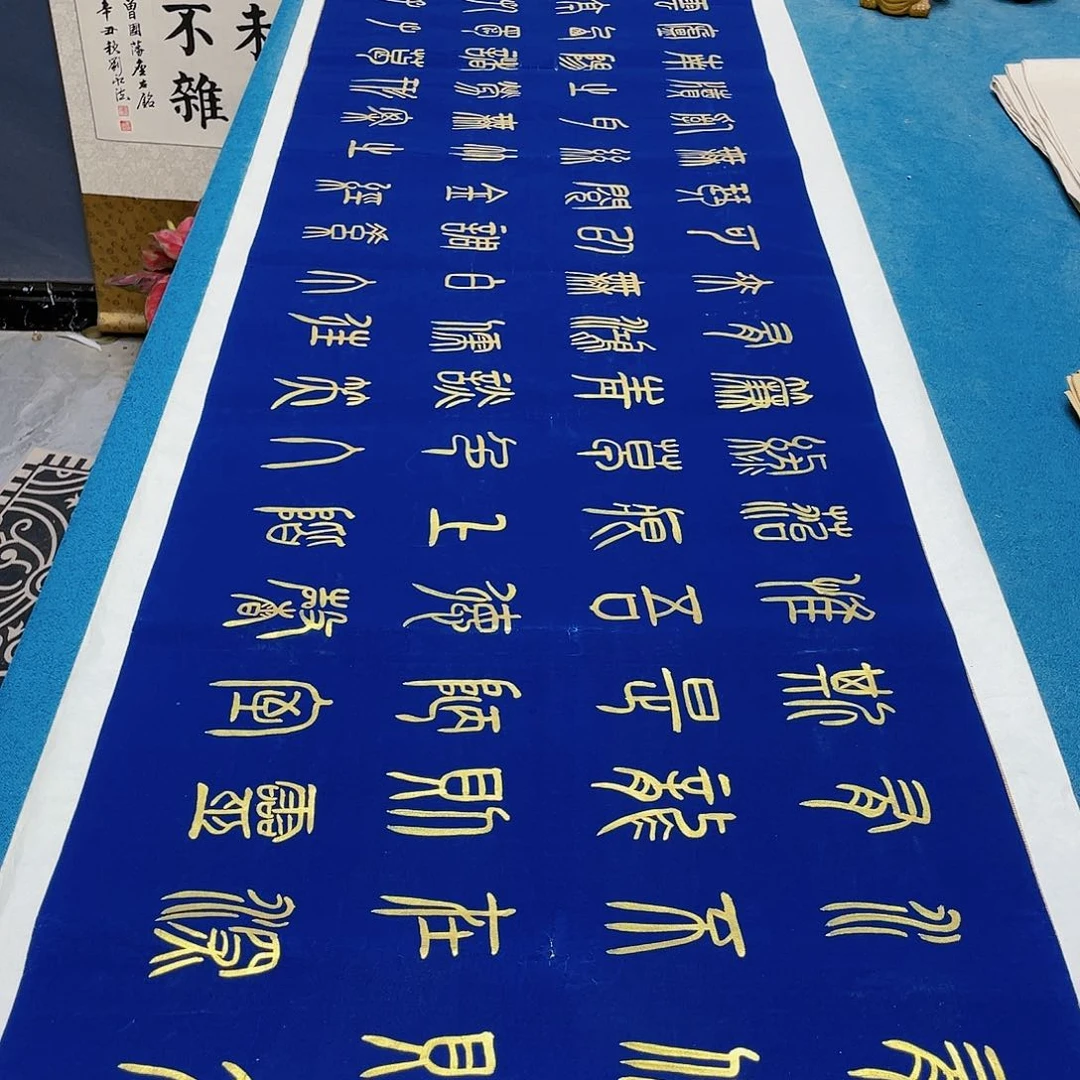 有仙則名
水不在深
有龍則靈
斯是陋室
惟吾德馨
苔痕上階
綠草色入
簾青談笑
有鴻儒往
來無白丁
可以調素
琴閱金經
無絲竹之
亂耳無案
牘之勞形
南陽諸葛
廬西蜀子
雲亭
未
不雜
曾國藩座右銘
辛丑秋劉